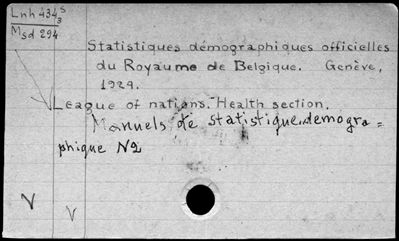 Lnh 434 s/3
Msd 294
Statistiques démographiques officielles
du Royaume de Belgique. Genève,
1929.
League of nations. Health section.
Manuels de statistique demogra=
phique N2
V
V